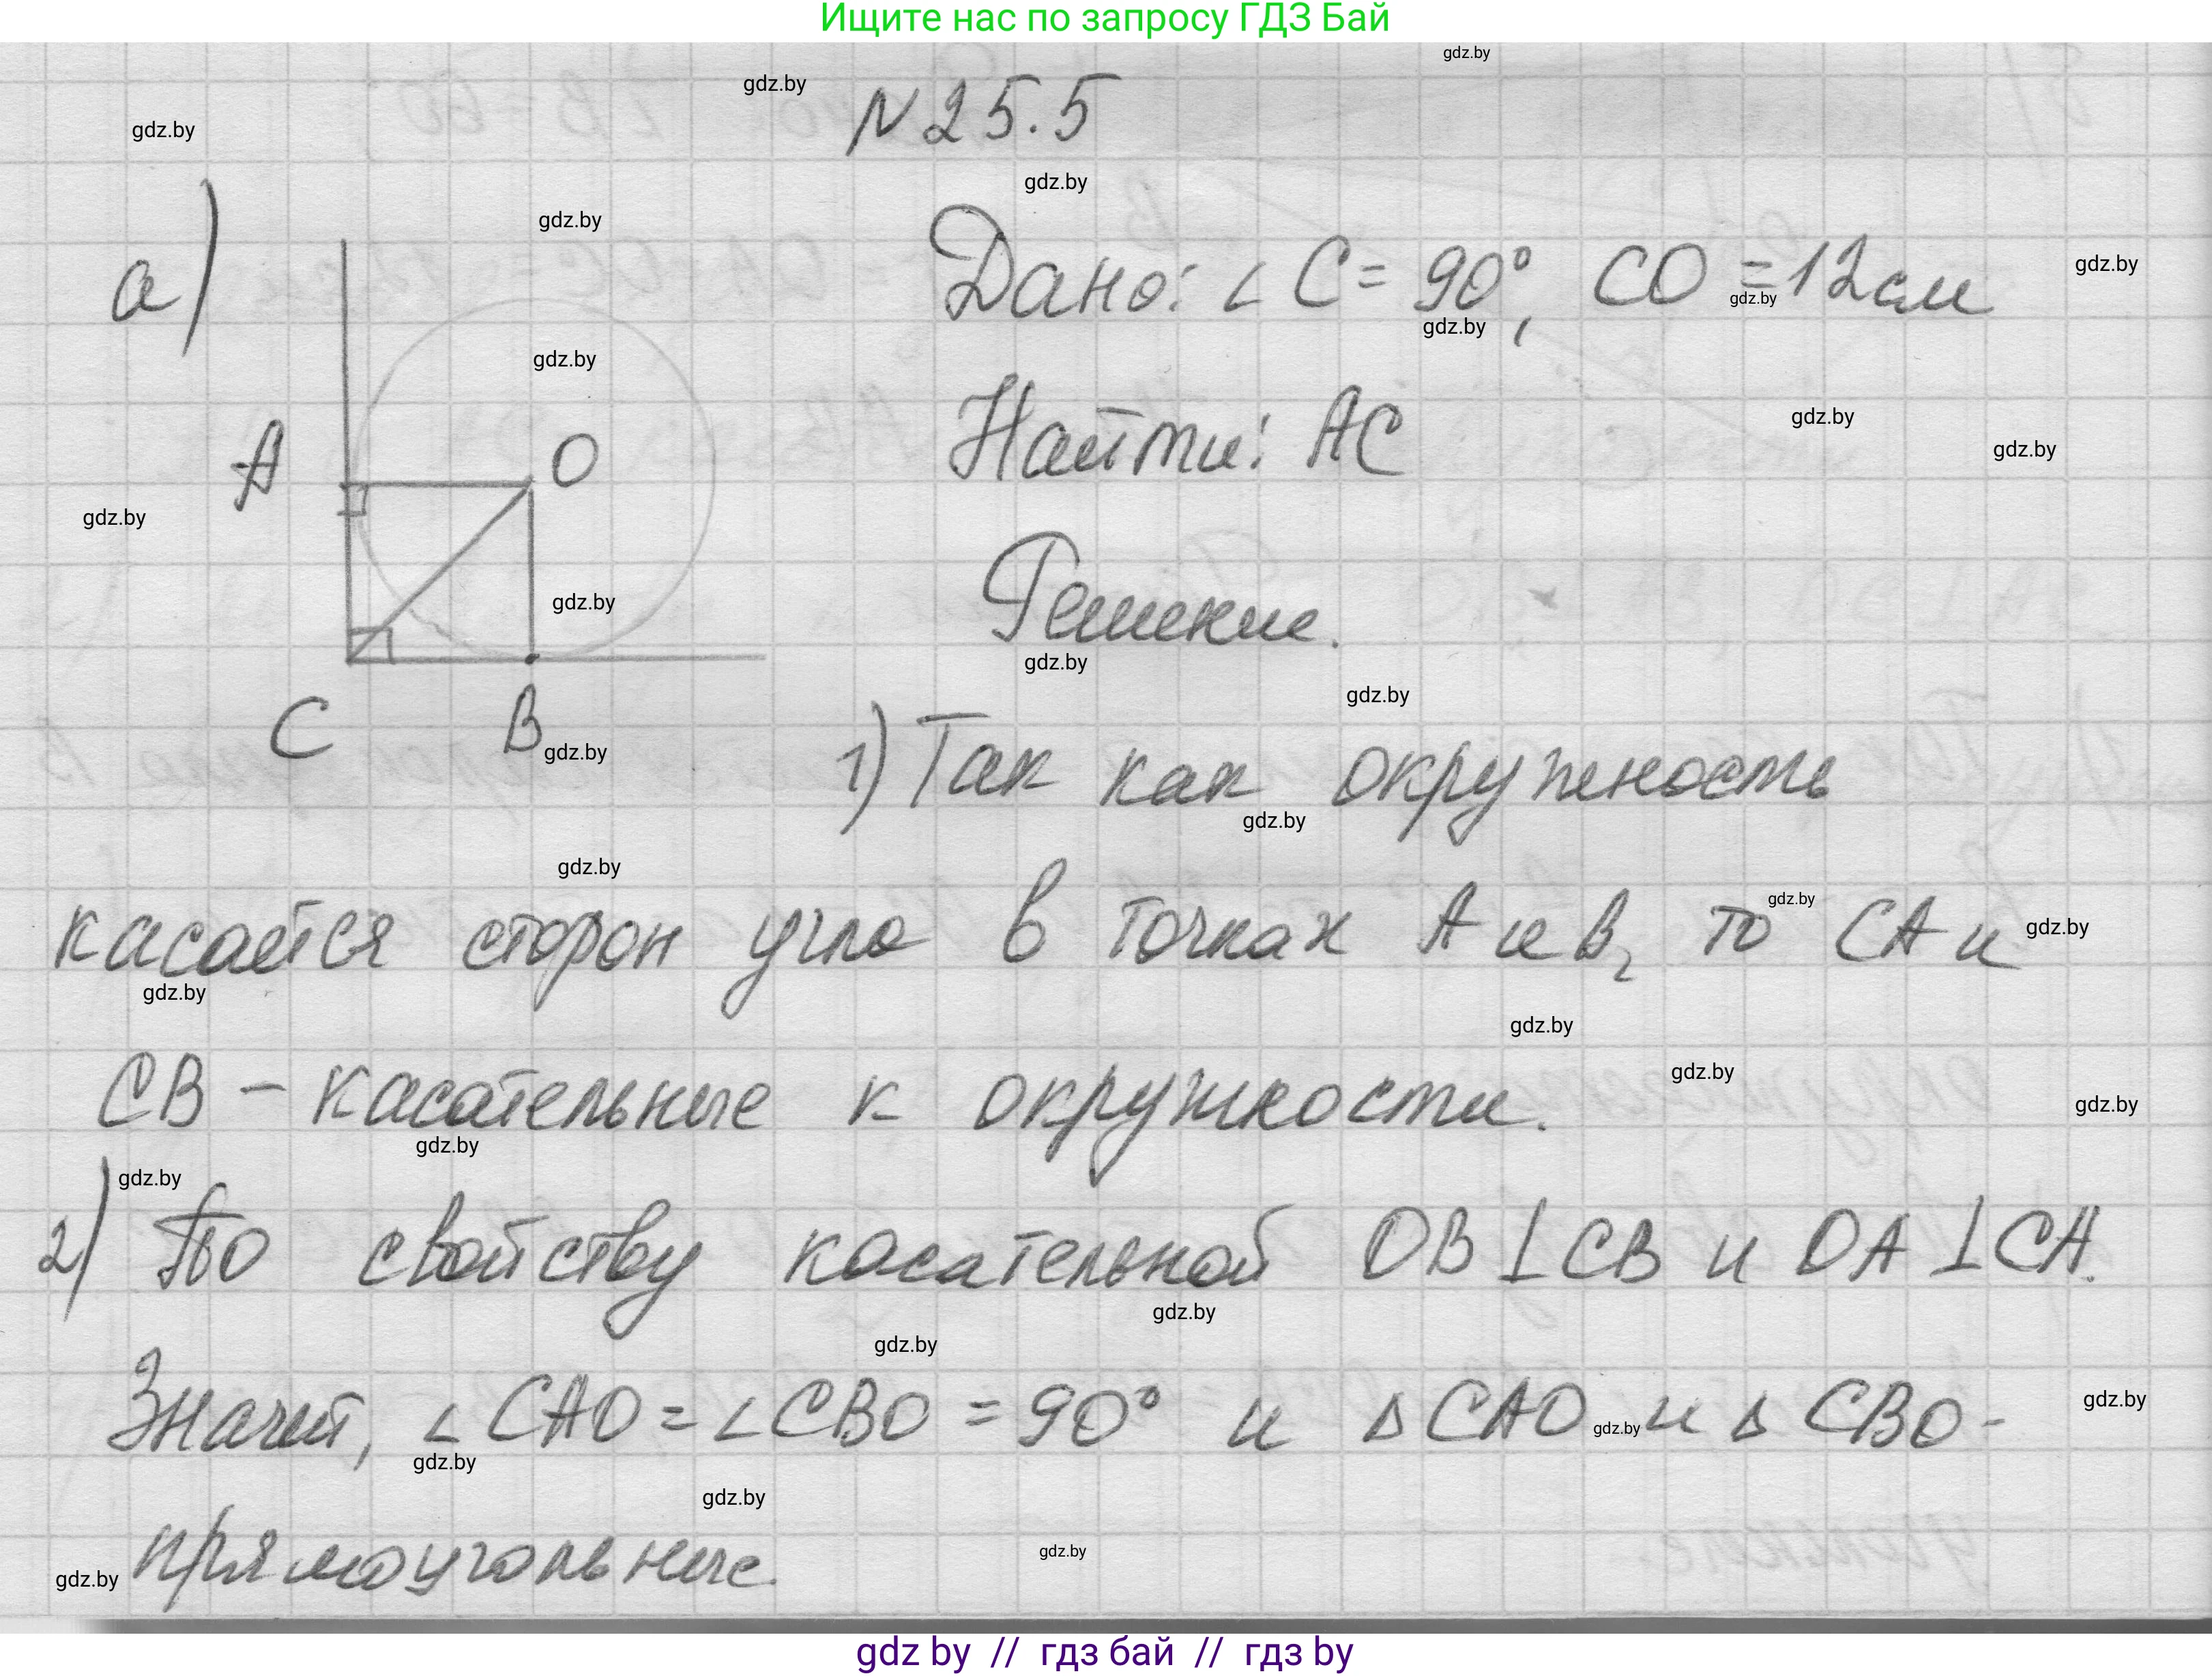 Ищите нас по запросу ГДЗ Бай
gdz.by
gdz.by
gdz.by
N 25.5
gdz.by
gdz.by
а)
Дано: ∠C = 90°, CO = 12 см
gdz.by
gdz.by
gdz.by
gdz.by
Найти: AC
gdz.by
gdz.by
A
O
gdz.by
Решение.
gdz.by
gdz.by
gdz.by
C
B
gdz.by
1) Так как окружность
gdz.by
gdz.by
касается сторон угла в точках A и B, то CA и
gdz.by
gdz.by
gdz.by
gdz.by
CB – касательные к окружности.
gdz.by
gdz.by
gdz.by
gdz.by
2) По свойству касательной OB ⊥ CB и OA ⊥ CA.
gdz.by
gdz.by
Значит, ∠CAO = ∠CBO = 90° и Δ CAO и Δ CBO -
gdz.by
gdz.by
gdz.by
gdz.by
прямоугольные.
gdz.by
gdz.by
gdz by // гдз бай // гдз by